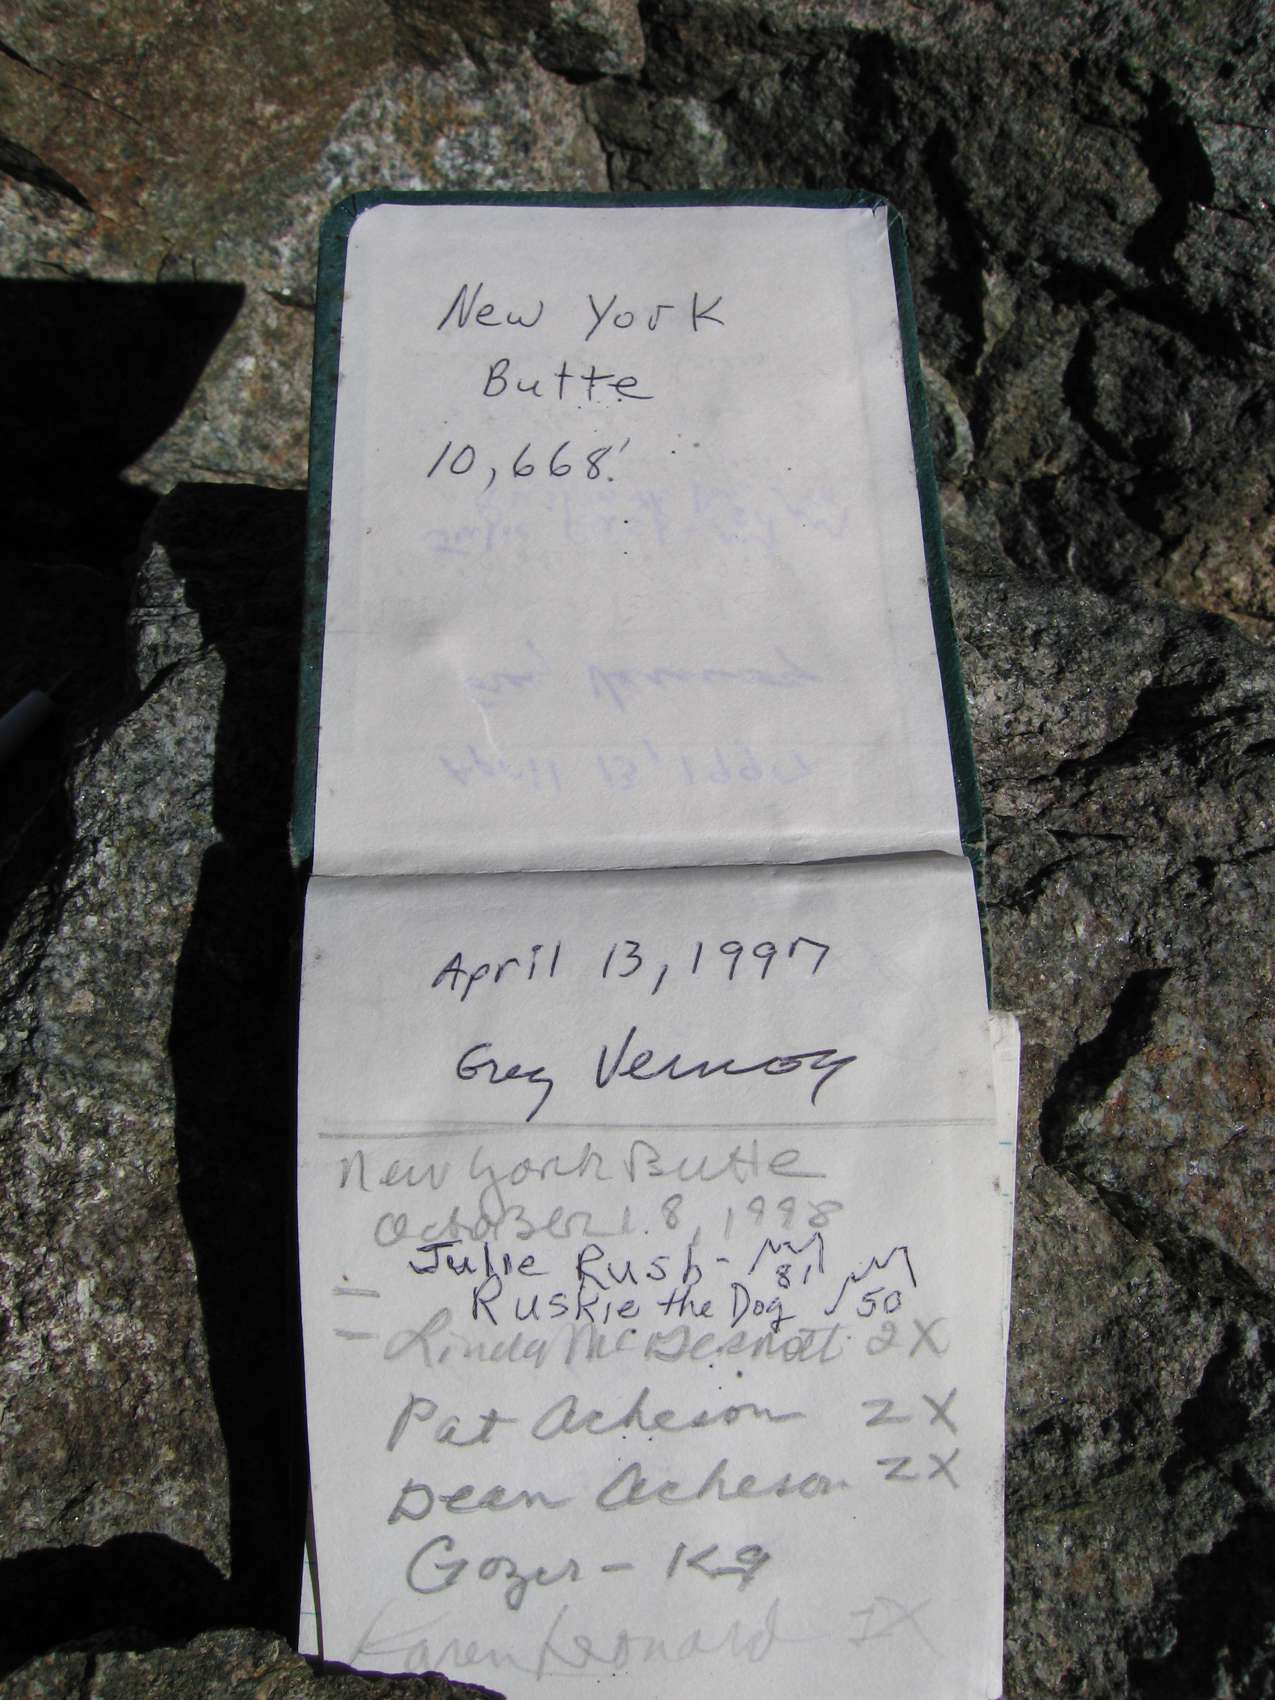 New York
Butte
10,668'
April 13, 1997
Greg Vernoy
New York Butte
October 18, 1998
Julie Rush - 81
Ruskie the Dog 50
Linda McDermott 2X
Pat Acheson 2X
Dean Acheson 2X
Gozer - K9
Karen Leonard 1X